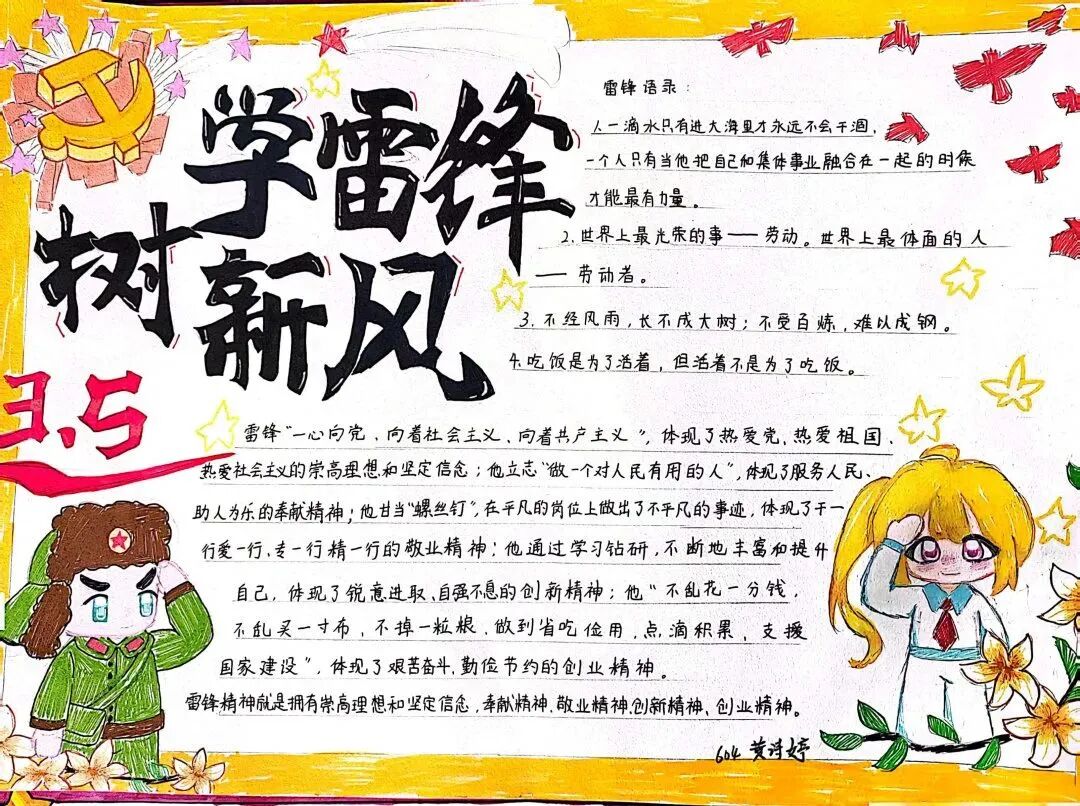 学雷锋
树新风
3.5
雷锋语录：
1.一滴水只有进大海里才永远不会干涸，
一个人只有当他把自己和集体事业融合在一起的时候
才能最有力量。
2.世界上最光荣的事——劳动。世界上最体面的人
——劳动者。
3.不经风雨，长不成大树；不受百炼，难以成钢。
4.吃饭是为了活着，但活着不是为了吃饭。
雷锋“一心向党、向着社会主义、向着共产主义”，体现了热爱党、热爱祖国、
热爱社会主义的崇高理想和坚定信念；他立志“做一个对人民有用的人”，体现了服务人民、
助人为乐的奉献精神；他甘当“螺丝钉”，在平凡的岗位上做出了不平凡的事迹，体现了干一
行爱一行、专一行精一行的敬业精神；他通过学习钻研，不断地丰富和提升
自己，体现了锐意进取、自强不息的创新精神；他“不乱花一分钱，
不乱买一寸布，不掉一粒粮、做到省吃俭用，点滴积累，支援
国家建设”，体现了艰苦奋斗、勤俭节约的创业精神。
雷锋精神就是拥有崇高理想和坚定信念，奉献精神、敬业精神、创新精神、创业精神。
604 黄诗婷